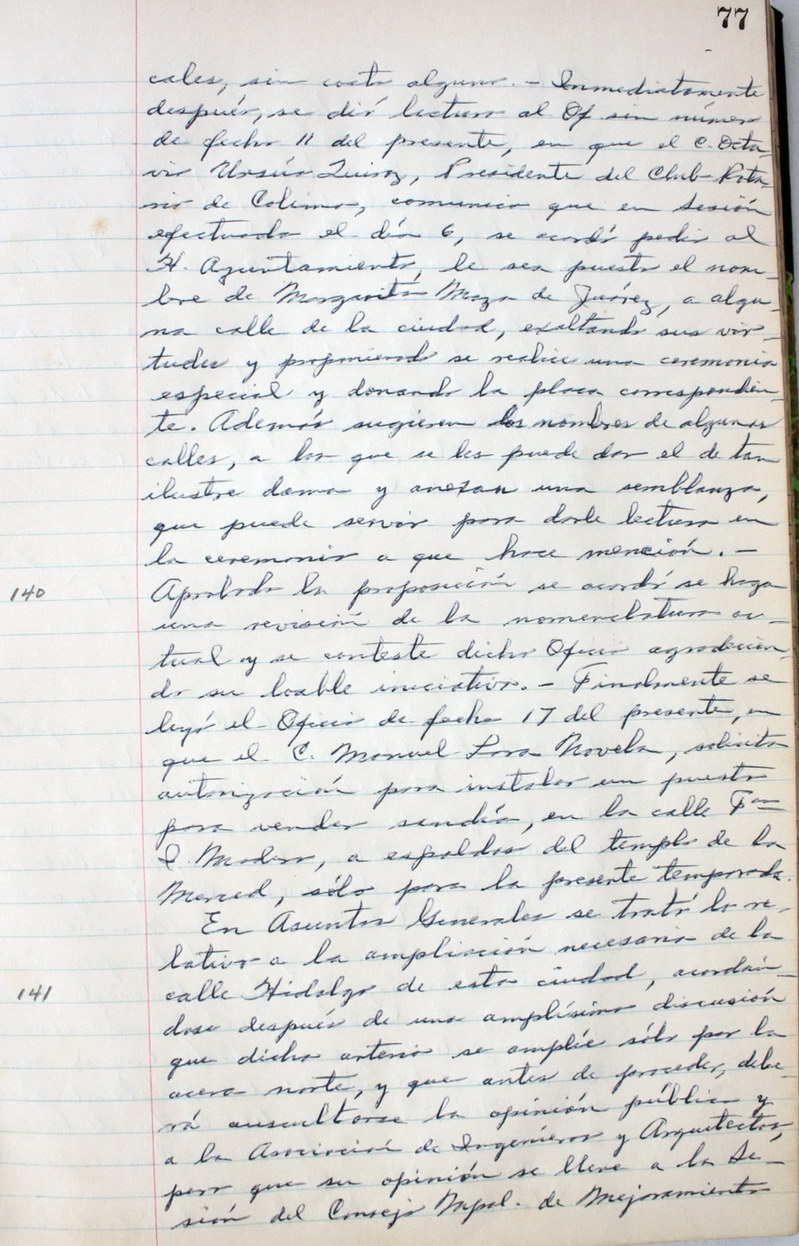 77
cales, sin costo alguno. - Inmediatamente
después, se dió lectura al Of sin número
de fecha 11 del presente, en que el C. Octa-
vio Ursúa Quiroz, Presidente del Club Rota-
rio de Colima, comunica que en Sesión
efectuada el día 6, se acordó pedir al
H. Ayuntamiento, le sea puesto el nom-
bre de Margarita Maza de Juárez, a algu-
na calle de la ciudad, exaltando sus vir-
tudes y proponiendo se realice una ceremonia
especial y donando la placa correspondien-
te. Además sugieren los nombres de algunas
calles, a las que se les puede dar el de tan
ilustre dama y anexan una semblanza,
que puede servir para darle lectura en
la ceremonia a que hace mención. -
140 Aprobada la proposición se acordó se haga
una revisión de la nomenclatura ac-
tual y se conteste dicho Oficio agradecien-
do su loable iniciativa. - Finalmente se
leyó el Oficio de fecha 17 del presente, en
que el C. Manuel Lara Novela, solicita
autorización para instalar un puesto
para vender sandía, en la calle Fco
I. Madero, a espaldas del templo de la
Merced, sólo para la presente temporada.
En Asuntos Generales se trató lo re-
lativo a la ampliación necesaria de la
141 calle Hidalgo de esta ciudad, acordán-
dose después de una amplísima discusión
que dicha arteria se amplíe sólo por la
acera norte, y que antes de proceder, debe-
rá auscultarse la opinión pública y
a la Asociación de Ingenieros y Arquitectos,
para que su opinión se lleve a la Se-
sión del Consejo Mpal. de Mejoramiento